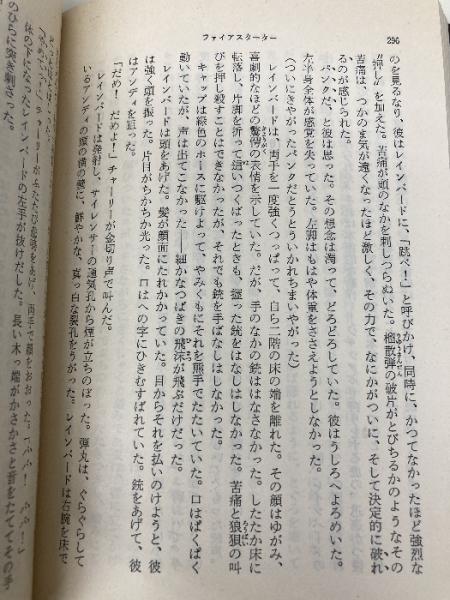 ファイアスターター
296
のと見るなり、彼はレインバードに、「跳べ！」と呼びかけ、同時に、かつてなかったほど強烈な
"押し"を加えた。苦痛が頭のなかを刺しつらぬいた。榴散弾の破片がとびちるかのようなその
苦痛は、つかのま気が遠くなったほど激しく、その力で、なにかがついに、そして決定的に破れ
るのが感じられた。
パンクだ、と彼は思った。その想念は濁って、どろどろしていた。彼はうしろへよろめいた。
左半身全体が感覚を失っていた。左脚はもはや体重をささえようとしなかった。
（ついにきやがったパンクだとうとういかれちまいやがった）
レインバードは、両手を一度強くつっぱって、自ら二階の床の端を離れた。その顔はゆがみ、
喜劇的なほどの驚愕の表情を示していた。だが、手のなかの銃ははなさなかった。したたか床に
転落し、片脚を折って這いつくばったときも、握った銃をはなしはしなかった。苦痛と狼狽の叫
びを押し殺すことはできなかったが、それでも銃を手ばなしはしなかった。
キャップは緑色のホースに駆けよって、やみくもにそれを熊手でたたいていた。口はぱくぱく
動いていたが、声は出てこなかった――細かなつばきの飛沫が飛ぶだけだった。
レインバードは頭をあげた。髪が顔面にたれかかっていた。目からそれを払いのけようと、彼
は強く頭を振った。片目がちかちか光った。口はへの字にひきむすばれていた。銃をあげて、彼
はアンディを狙った。
「だめ！　だめよ！」チャーリーが金切り声で叫んだ。
レインバードは発射し、サイレンサーの通気孔から煙が立ちのぼった。弾丸は、ぐらぐらして
いるアンディの頭の横の壁に、鮮やかな、真っ白な裂孔をうがった。レインバードは右腕を床で
体の下になったレインバードの左手が抜けだした。長い木っ端がかさかさと音をたててその手
のひらに突き刺さった。
チャーリーがふたたび悲鳴をあげ、両手で顔をおおった。